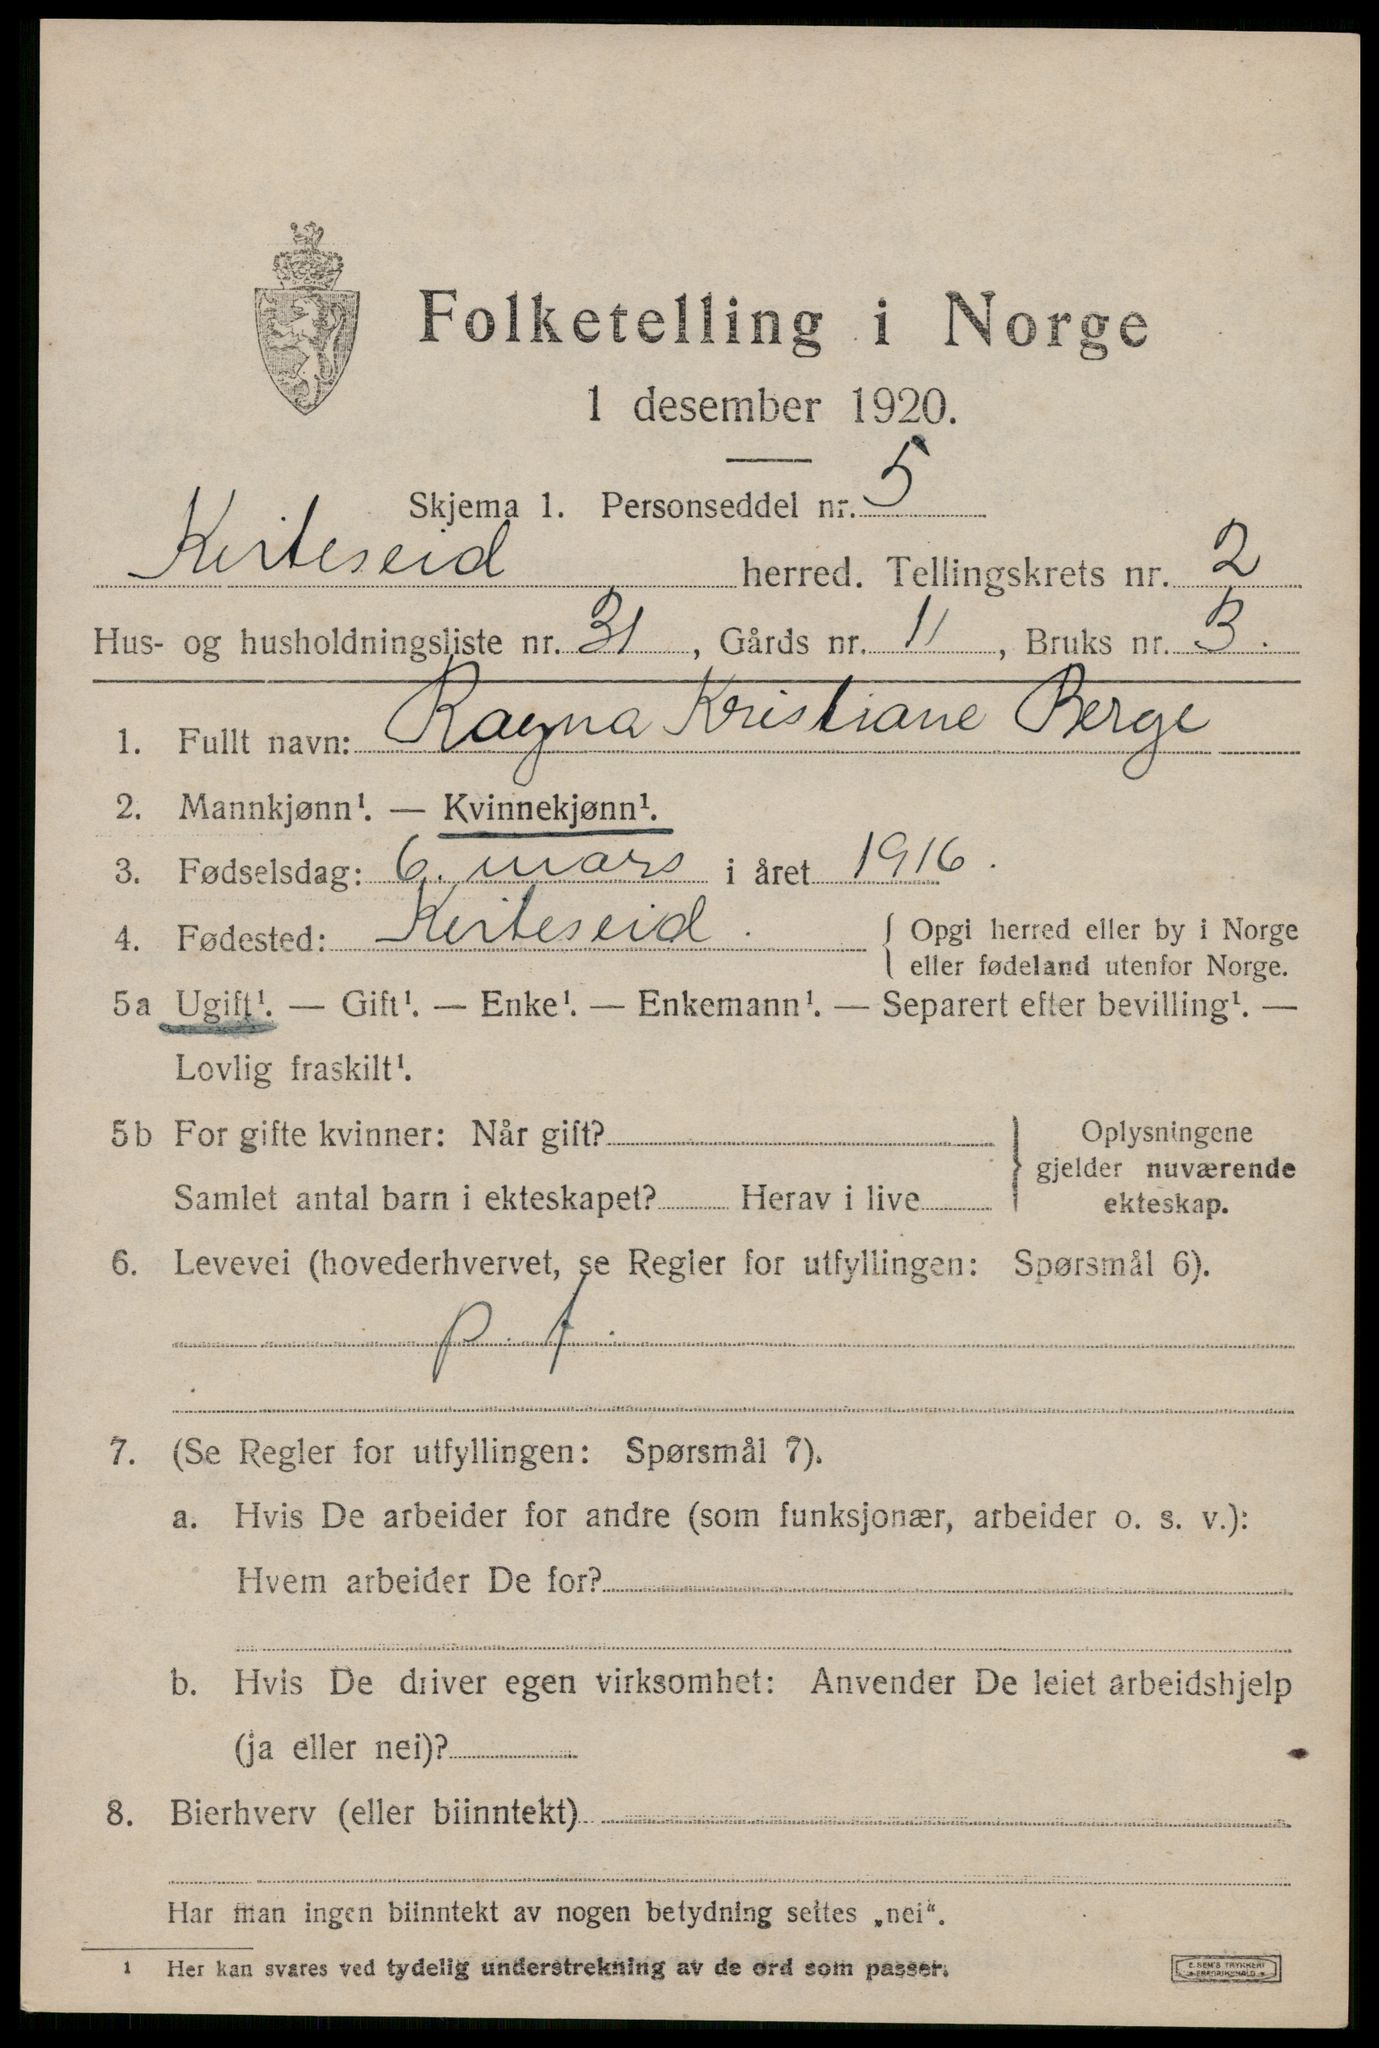 Folketelling i Norge
1 desember 1920.
Skjema 1. Personseddel nr. 5
Kviteseid herred. Tellingskrets nr. 2
Hus- og husholdningsliste nr. 31, Gårds nr. 11, Bruks nr. 3.
1. Fullt navn: Ragna Kristiane Berge
2. Mannkjønn¹. — Kvinnekjønn¹.
3. Fødselsdag: 6. mars i året 1916.
4. Fødested: Kviteseid. { Opgi herred eller by i Norge
eller fødeland utenfor Norge.
5a Ugift¹. — Gift¹. — Enke¹. — Enkemann¹. — Separert efter bevilling¹. —
Lovlig fraskilt¹.
5b For gifte kvinner: Når gift? } Oplysningene
gjelder nuværende
Samlet antal barn i ekteskapet? Herav i live ekteskap.
6. Levevei (hovederhvervet, se Regler for utfyllingen: Spørsmål 6).
p. f.
7. (Se Regler for utfyllingen: Spørsmål 7).
a. Hvis De arbeider for andre (som funksjonær, arbeider o. s. v.):
Hvem arbeider De for?
b. Hvis De driver egen virksomhet: Anvender De leiet arbeidshjelp
(ja eller nei)?
8. Bierhverv (eller biinntekt)
Har man ingen biinntekt av nogen betydning settes „nei“.
¹ Her kan svares ved tydelig understrekning av de ord som passer.
E. SEM'S TRYKKERI
FREDRIKSHALD